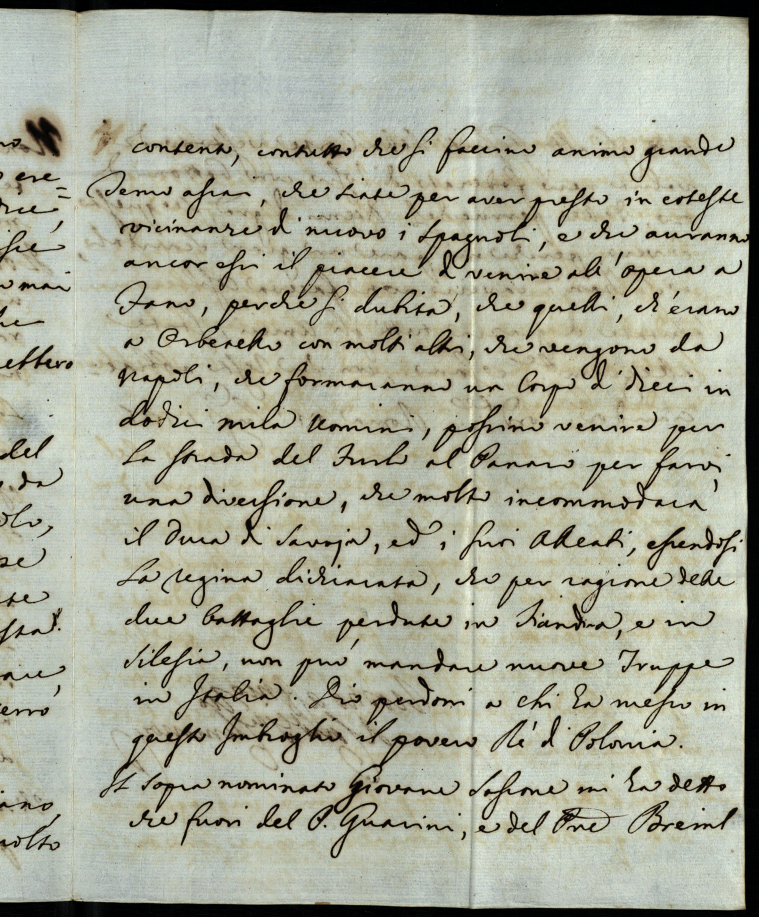 no
contento, contutto che si faccino animo grande
o cre=
Temo assai, che siate per aver presto in coteste
vicinanze di nuovo i Spagnoli, e che auranno
ancor essi il piacere di venire all'opera a
o mai
Fano, perche si dubita, che quelli, ch'erano
he
a Orbetello con molti altri, che vengono da
ettero
Napoli, che formaranno un Corpo di dieci in
dodici mila Uomini, possino venire per
del
La strada del Furlo al Panaro per farvi
da
una diversione, che molto incommodarà
olo,
il Duca di Savoja, ed i suoi Alleati, essendosi
se
La regina dichiarata, che per ragione delle
te
due battaglie perdute in Fiandra, e in
sta
Silesia, non può mandare nuove Truppe
in Italia. Dio perdoni a chi ha messo in
erró
questo Imbroglio il povero Ré di Polonia.
Il sopra nominato Giovane Sassone mi ha detto
iano,
che fuori del P. Guarini, e del Pre Breinl
molto